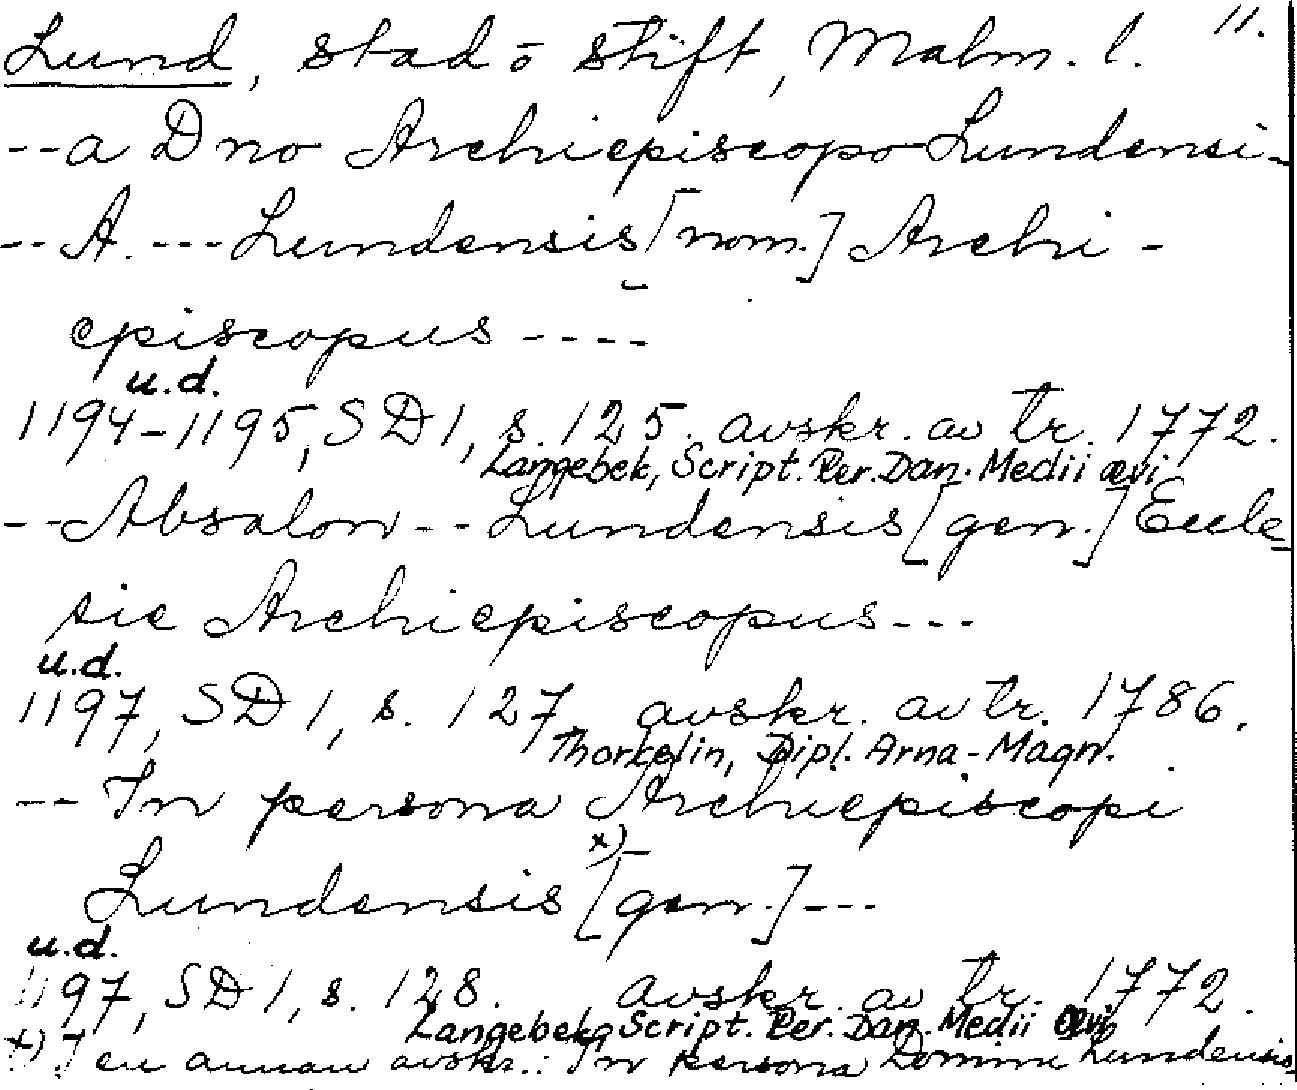 11.
Lund, stad o stift, Malm. l.
--a Dno Archiepiscopo Lundensi-
--A. --- Lundensis [nom.] Archi-
episcopus ----
u.d.
1194-1195, SD 1, s. 125. avskr. av tr. 1772.
Langebek, Script. Rer. Dan. Medii ævi
--Absalon -- Lundensis [gen.] Eccle-
sie Archiepiscopus ---
u.d.
1197, SD 1, s. 127. avskr. av tr. 1786.
Thorkelin, Dipl. Arna-Magn.
-- In persona Archiepiscopi
x)
Lundensis [gen.] ---
u.d.
1197, SD 1, s. 128. avskr. av tr. 1772.
Langebek, Script. Rer. Dan. Medii ævi
x) I en annan avskr.: In persona Domini Lundensis